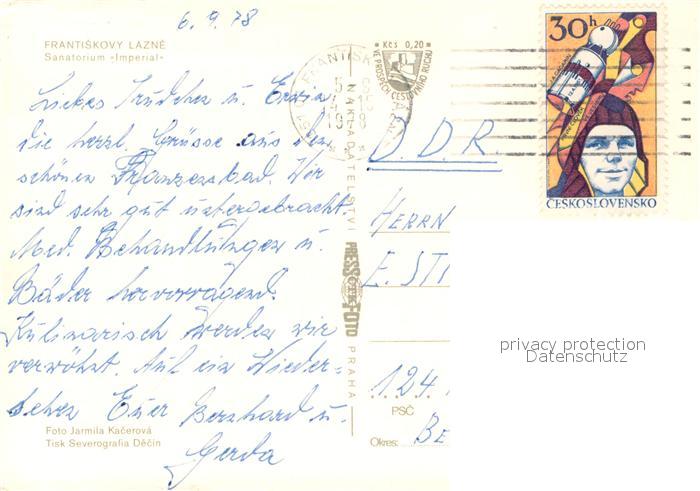 6.9.78
FRANTIŠKOVY LAZNĚ
Sanatorium »Imperial«
Liebes Trudchen u. Erwin
die herzl. Grüsse aus dem
schönen Franzensbad. Wir
sind sehr gut untergebracht.
Med. Behandlungen u.
Bäder hervorragend.
Kulinarisch werden wir
verwöhnt. Auf ein Wieder-
sehen Euer Bernhard u.
Gerda
Foto Jarmila Kačerová
Tisk Severografia Děčín
NAKLADATELSTVÍ
PRESSFOTO
PRAHA
Kčs 0,20
VE PROSPĚCH CESTOVNÍHO RUCHU
30h
ČESKOSLOVENSKO
D.D.R.
HERRN
E. STI
124
PSČ
Okres: BE
privacy protection
Datenschutz